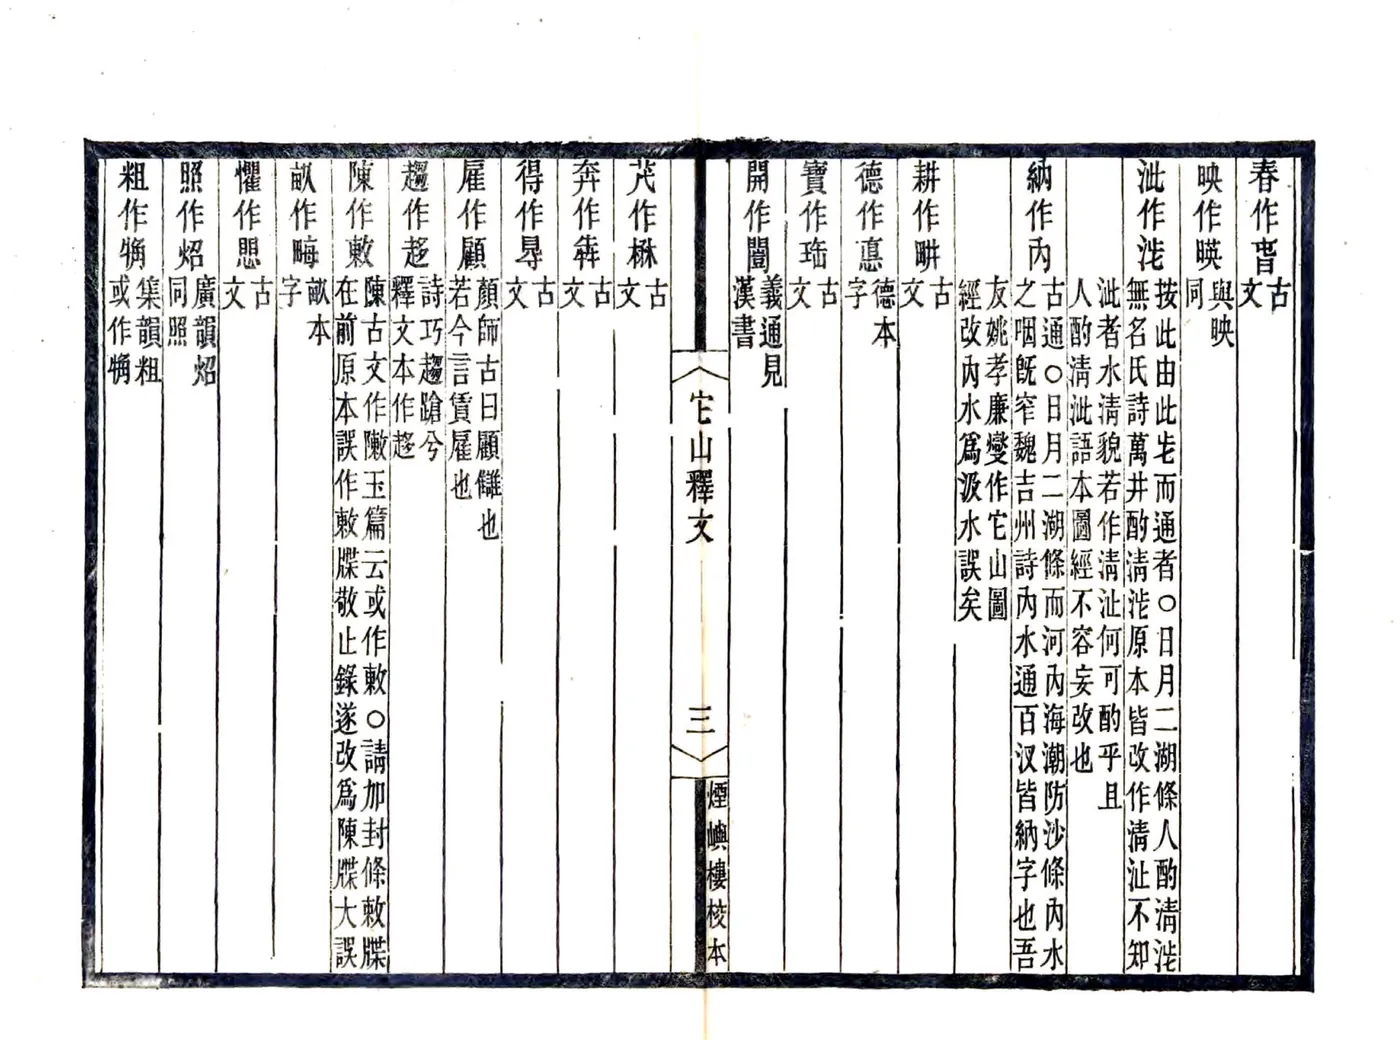 春作旾古文
映作暎與映同
泚作泚按此由此屯而通者○日月二湖條人酌清泚無名氏詩萬井酌清泚原本皆改作清沚不知
泚者水清貌若作清沚何可酌乎且人酌清泚語本圖經不容妄改也
納作內古通○日月二湖條而河內海潮防沙條內水之咽旣窄魏吉州詩內水通百汊皆納字也吾
友姚孝廉燮作它山圖經改內水爲汲水誤矣
耕作畊古文
德作悳德本字
寶作珤古文
開作闓義通見漢書
它山釋文
三
煙嶼樓校本
茂作楙古文
奔作犇古文
得作㝵古文
雇作顧顏師古曰顧讎也若今言賃雇也
趨作趍詩巧趨蹌兮釋文本作趍
陳作敶陳古文作敶玉篇云或作敕○請加封條敕牒在前原本誤作敕牒敬止錄遂改爲陳牒大誤
畝作畮畝本字
懼作思古文
照作炤廣韻炤同照
粗作觕集韻粗或作觕